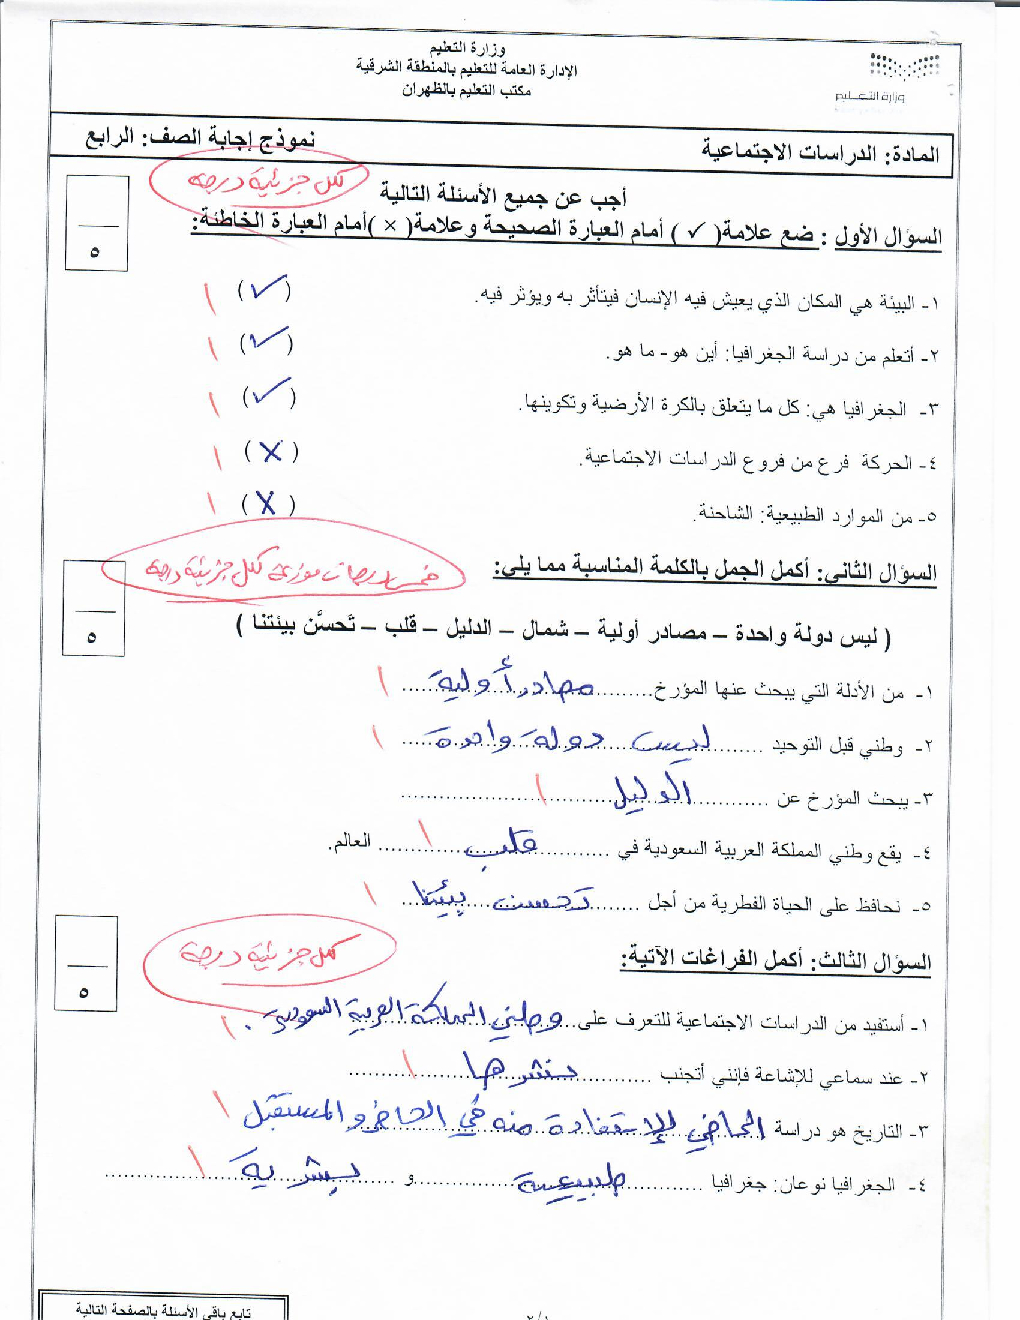 وزارة التعليم
الإدارة العامة للتعليم بالمنطقة الشرقية
مكتب التعليم بالظهران
وزارة التعليم
المادة: الدراسات الاجتماعية نموذج إجابة الصف: الرابع
لكل جزئية درجة
أجب عن جميع الأسئلة التالية
السؤال الأول : ضع علامة( ✓ ) أمام العبارة الصحيحة وعلامة( × )أمام العبارة الخاطئة:
٥
١- البيئة هي المكان الذي يعيش فيه الإنسان فيتأثر به ويؤثر فيه. (✓) ١
٢- أتعلم من دراسة الجغرافيا: أين هو- ما هو. (✓) ١
٣- الجغرافيا هي: كل ما يتعلق بالكرة الأرضية وتكوينها. (✓) ١
٤- الحركة فرع من فروع الدراسات الاجتماعية. (X) ١
٥- من الموارد الطبيعية: الشاحنة. (X) ١
السؤال الثاني: أكمل الجمل بالكلمة المناسبة مما يلي: خمس درجات موزعة لكل جزئية درجة
٥
( ليس دولة واحدة – مصادر أولية – شمال – الدليل – قلب – تَحسَّن بيئتنا )
١- من الأدلة التي يبحث عنها المؤرخ.........مصادر أولية...... ١
٢- وطني قبل التوحيد ......... ليست دولة واحدة ..... ١
٣- يبحث المؤرخ عن ............ الدليل ............ ١
٤- يقع وطني المملكة العربية السعودية في ............ قلب ............ العالم. ١
٥- نحافظ على الحياة الفطرية من أجل ........ تحسن بيئتنا ... ١
السؤال الثالث: أكمل الفراغات الآتية: لكل جزئية درجة
٥
١- أستفيد من الدراسات الاجتماعية للتعرف على ... وطني المملكة العربية السعودية . ١
٢- عند سماعي للإشاعة فإنني أتجنب ............ نشرها ............ ١
٣- التاريخ هو دراسة الماضي للإستفادة منه في الحاضر والمستقبل ١
٤- الجغرافيا نوعان: جغرافيا ............ طبيعية ............و ........ بشرية ............ ١
تابع باقي الأسئلة بالصفحة التالية
٢/١